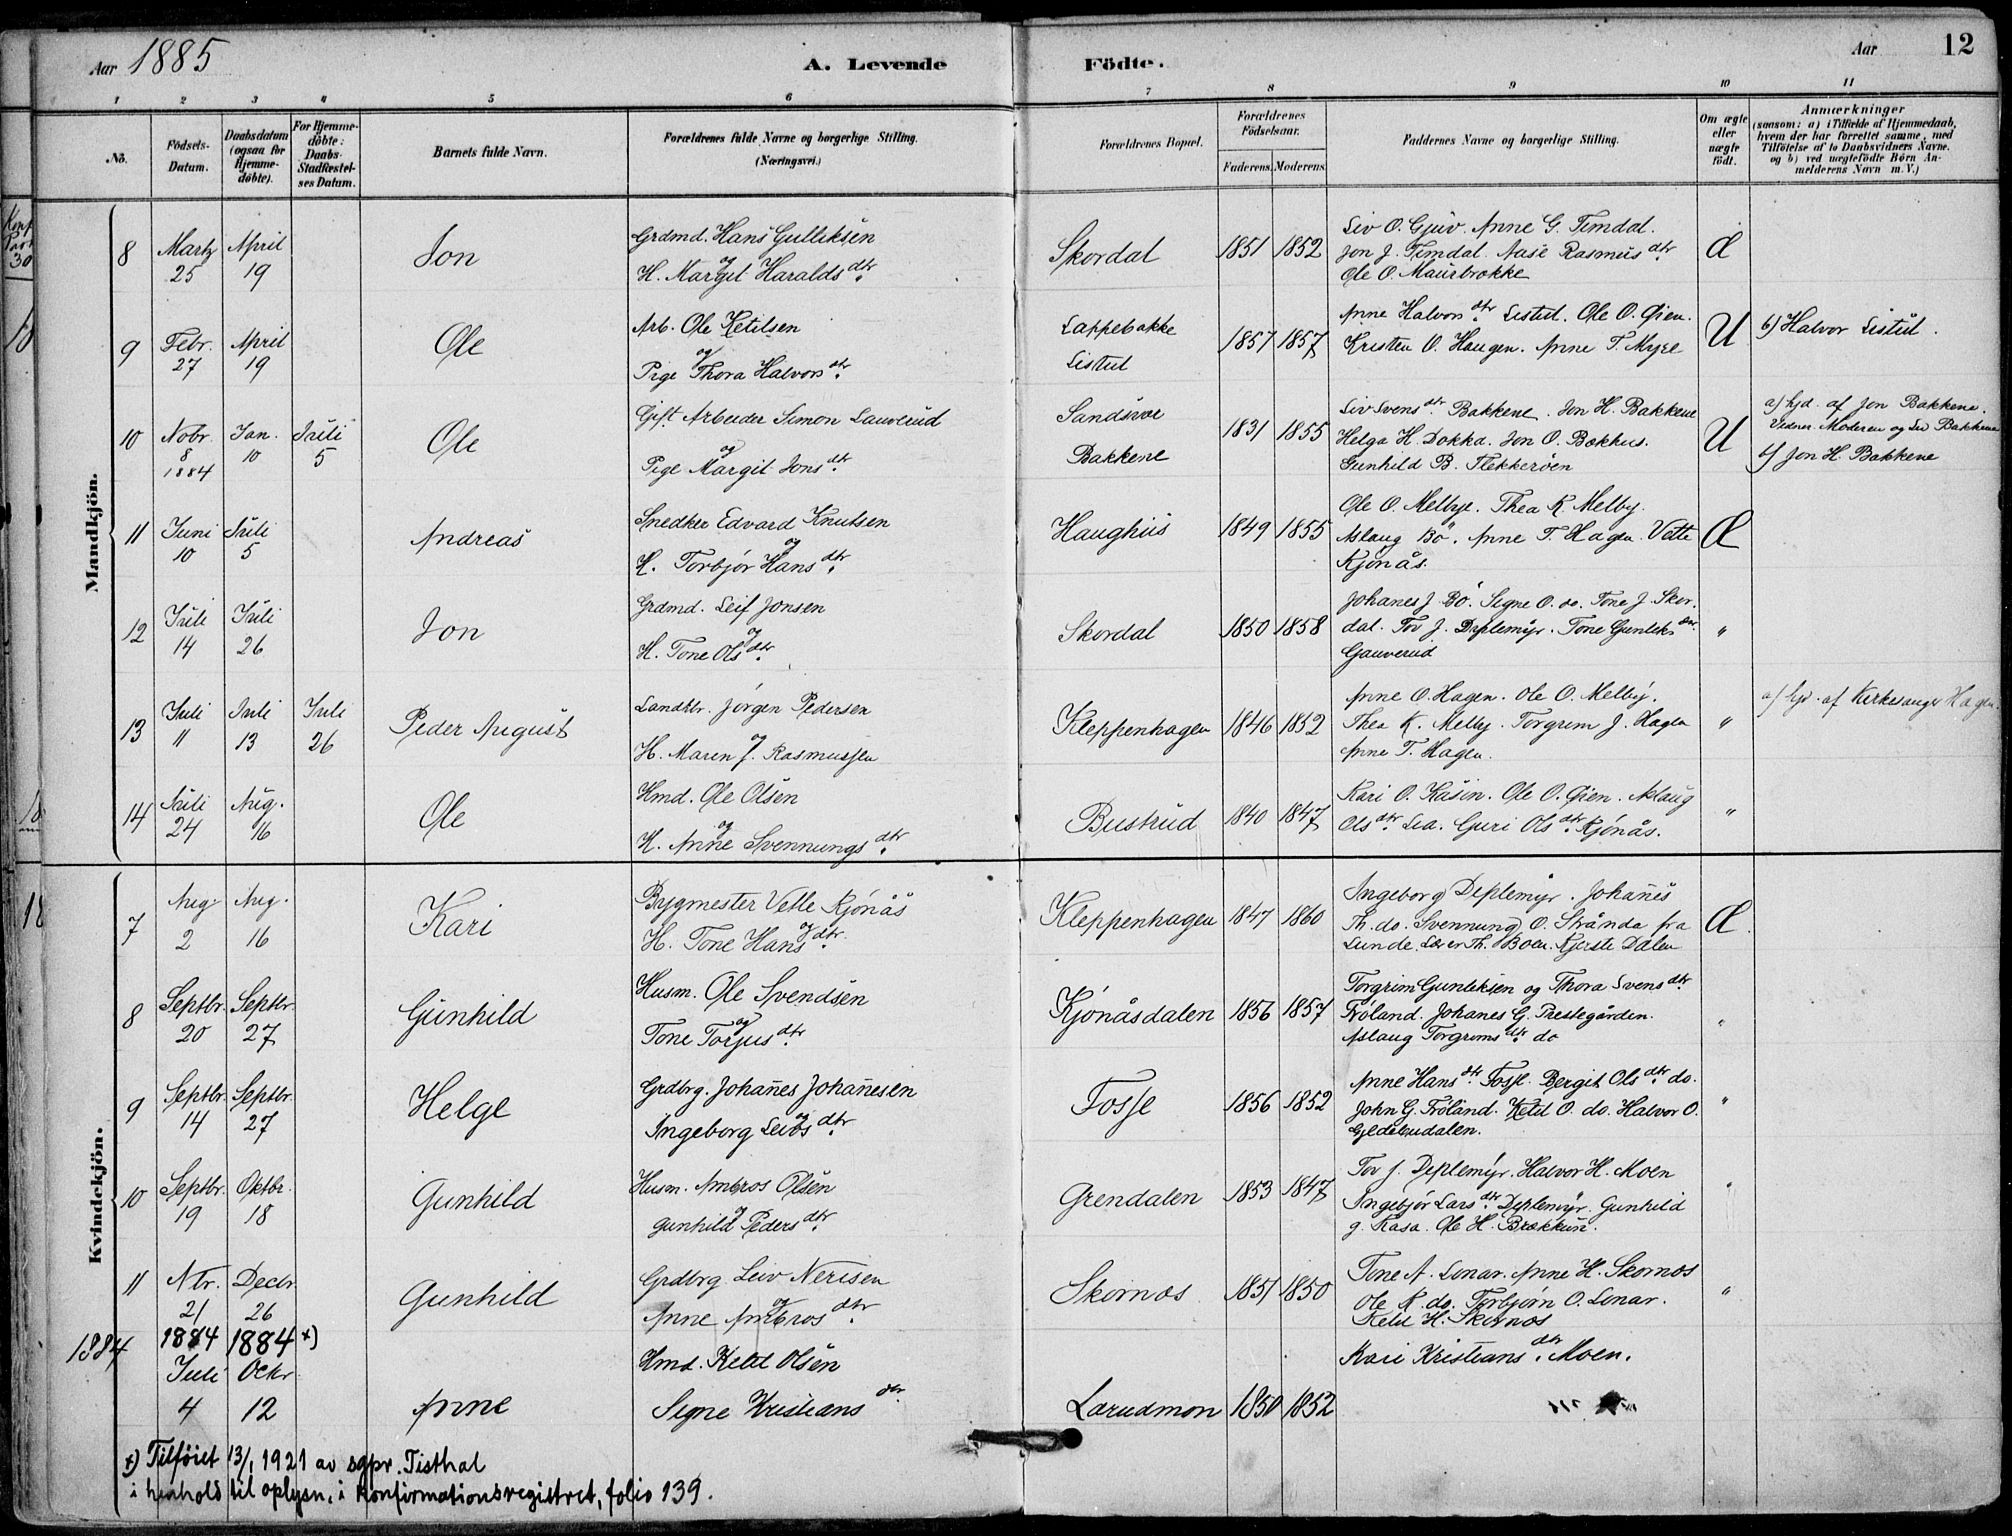 Aar 1885
A. Levende
Födte.
Aar 12
1 2 3 4 5 6 7 8 9 10 11
No.
Födsels-Datum.
Daabsdatum (ogsaa for Hjemme-döbte).
For Hjemme-döbte: Daabs-Stadfæstel-ses Datum.
Barnets fulde Navn.
Forældrenes fulde Navne og borgerlige Stilling. (Næringsvei.)
Forældrenes Bopæl.
Forældrenes Födselsaar.
Faderens. Moderens.
Faddernes Navne og borgerlige Stilling.
Om ægte eller uægte födt.
Anmærkninger
(saasom: a) i Tilfælde af Hjemmedaab,
hvem der har forrettet samme, med
Tilföielse af to Daabsvidners Navne.
og b) ved uægtefödte Börn An-
melderens Navn m. V.)
Mandkjön.
8 Marts 25 April 19 Jon
Grdmd. Hans Gulliksen
og
H. Margit Haralds dtr.
Skordal 1851 1852
Liv O. Gjuv. Anne G. Temdal.
Jon J. Temdal. Aase Rasmus dtr.
Ole O. Maurbrække
Æ
9 Febr. 27 April 19 Ole
Arb. Ole Ketilsen
og
Pige Thora Halvors dtr.
Lappebakke
Listul
1857 1857
Anne Halvors dtr. Listul. Ole O. Øien.
Kristen O. Haugen. Anne T. Myre
U
b) Halvor Listul.
10 Nobr. 8 1884 Jan. 10 Juli 5 Ole
Gift Arbeider Simon Lauverud
og
Pige Margit Jons dtr.
Sandsvær
Bakkene
1831 1855
Liv Svens dtr. Bakkene. Jon H. Bakkene
Helga H. Dokka. Jon O. Bækhus.
Gunhild B. Flekkerøen
U
a) hjd. af Jon Bakkene.
Vidner. Moderen og Liv Bakkene
b) Jon H. Bakkene
11 Juni 10 Juli 5 Andreas
Snedker Edvard Knutsen
og
H. Torbjør Hans dtr.
Haughus 1849 1855
Ole O. Melbye. Thea K. Melby.
Aslaug Bö. Anne T. Hagen. Vette
Kjönås.
Æ
12 Juli 14 Juli 26 Jon
Grdmd. Leif Jonsen
og
H. Tone Ols dtr.
Skordal 1850 1858
Johanes J. Bö. Signe O. do. Tone J. Skor-
dal. Tov J. Deplemyr. Tone Gunleks dtr.
Gauverud
"
13 Juli " Juli 13 Juli 26 Peder August
Landhr. Jørgen Pedersen
og
H. Maren J. Rasmussen
Kleppenhagen 1846 1852
Anne O. Hagen. Ole O. Melby.
Thea K. Melby. Torgrim J. Hagen
Anne T. Hagen.
"
a) hjd. af Kirkesanger Hagen.
14 Juli 24 Aug. 16 Ole
Hmd. Ole Olsen
og
H. Anne Svennungs dtr.
Bustrud 1840 1847
Kari O. Kåsin. Ole O. Øien. Aslaug
Ols dtr. Lia. Guri Ols dtr. Kjönås.
"
Kvindekjön.
7 Aug 2 Aug. 16 Kari
Bygmester Vetle Kjönås
og
H. Tone Hans dtr.
Kleppenhagen 1847 1860
Ingeborg Deplemyr. Johanes
Th. do. Svennung O. Strånda fra
Lunde. Lærer Th. Boen. Kjerste Dalen
Æ
8 Septbr. 20 Septbr. 27 Gunhild
Husm. Ole Svendsen
og
Tone Torjus dtr.
Kjönåsdalen 1856 1857
Torgrim Gunleksen og Thora Svens dtr.
Fröland. Johanes G. Prestegården.
Aslaug Torgrims dtr. do
"
9 Septbr. 14 Septbr. 27 Helge
Grdbrg. Johanes Johanesen
og
Ingeborg Leivs dtr.
Fosse 1856 1852
Anne Hans dtr. Fosse. Bergit Ols dtr. do.
John G. Fröland. Ketil O. do. Halvor O.
"
10 Septbr. 19 Oktbr. 18 Gunhild
Husm. Ambros Olsen
og
Gunhild Peders dtr.
Grendalen 1853 1847
Tov J. Deplemyr. Halvor H. Moen
Ingebjör Lars dtr. Deplemyr. Gunhild
G. Kasa. Ole H. Brækkun.
"
11 Nbr. 21 Decbr. 26 Gunhild
Grdbrg Leiv Nerisen
og
Anne Ambros dtr.
Skornæs 1851 1850
Tone A. Lonar. Anne H. Skornæs
Ole K. do. Torbjørn O. Lonar.
Ketil H. Skornæs
"
1884 1884 1884 x)
Juli 4 Octr 12 Anne
Hmd. Ketil Olsen
Signe Kristians dtr
Larudmon 1850 1852
Kari Kristians dtr. Moen.
x) Tilföiet 13/1 1921 av sgpr. Tisthal
i henhold til oplysn. i Konfirmationsregistret, folio 139.